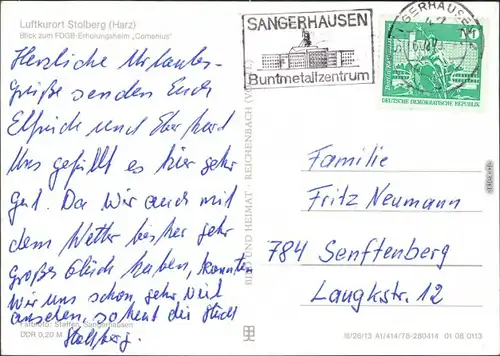 Luftkurort Stolberg (Harz)
Blick zum FDGB-Erholungsheim „Comenius“
Herzliche Urlaubs-
grüße senden Euch
Elfriede und Eberhard
Uns gefällt es hier sehr
gut. Da wir auch mit
dem Wetter bisher sehr
großes Glück haben, konnten
wir uns schon sehr viel
ansehen, so heut die Stadt
Stolberg.
Farbfoto: Steffen, Sangerhausen
DDR 0,20 M
BILD UND HEIMAT · REICHENBACH
SANGERHAUSEN
Buntmetallzentrum
SANGERHAUSEN
10
DEUTSCHE DEMOKRATISCHE REPUBLIK
Familie
Fritz Neumann
784 Senftenberg
Langkstr. 12
A1/414/78-280414 01 08 0113